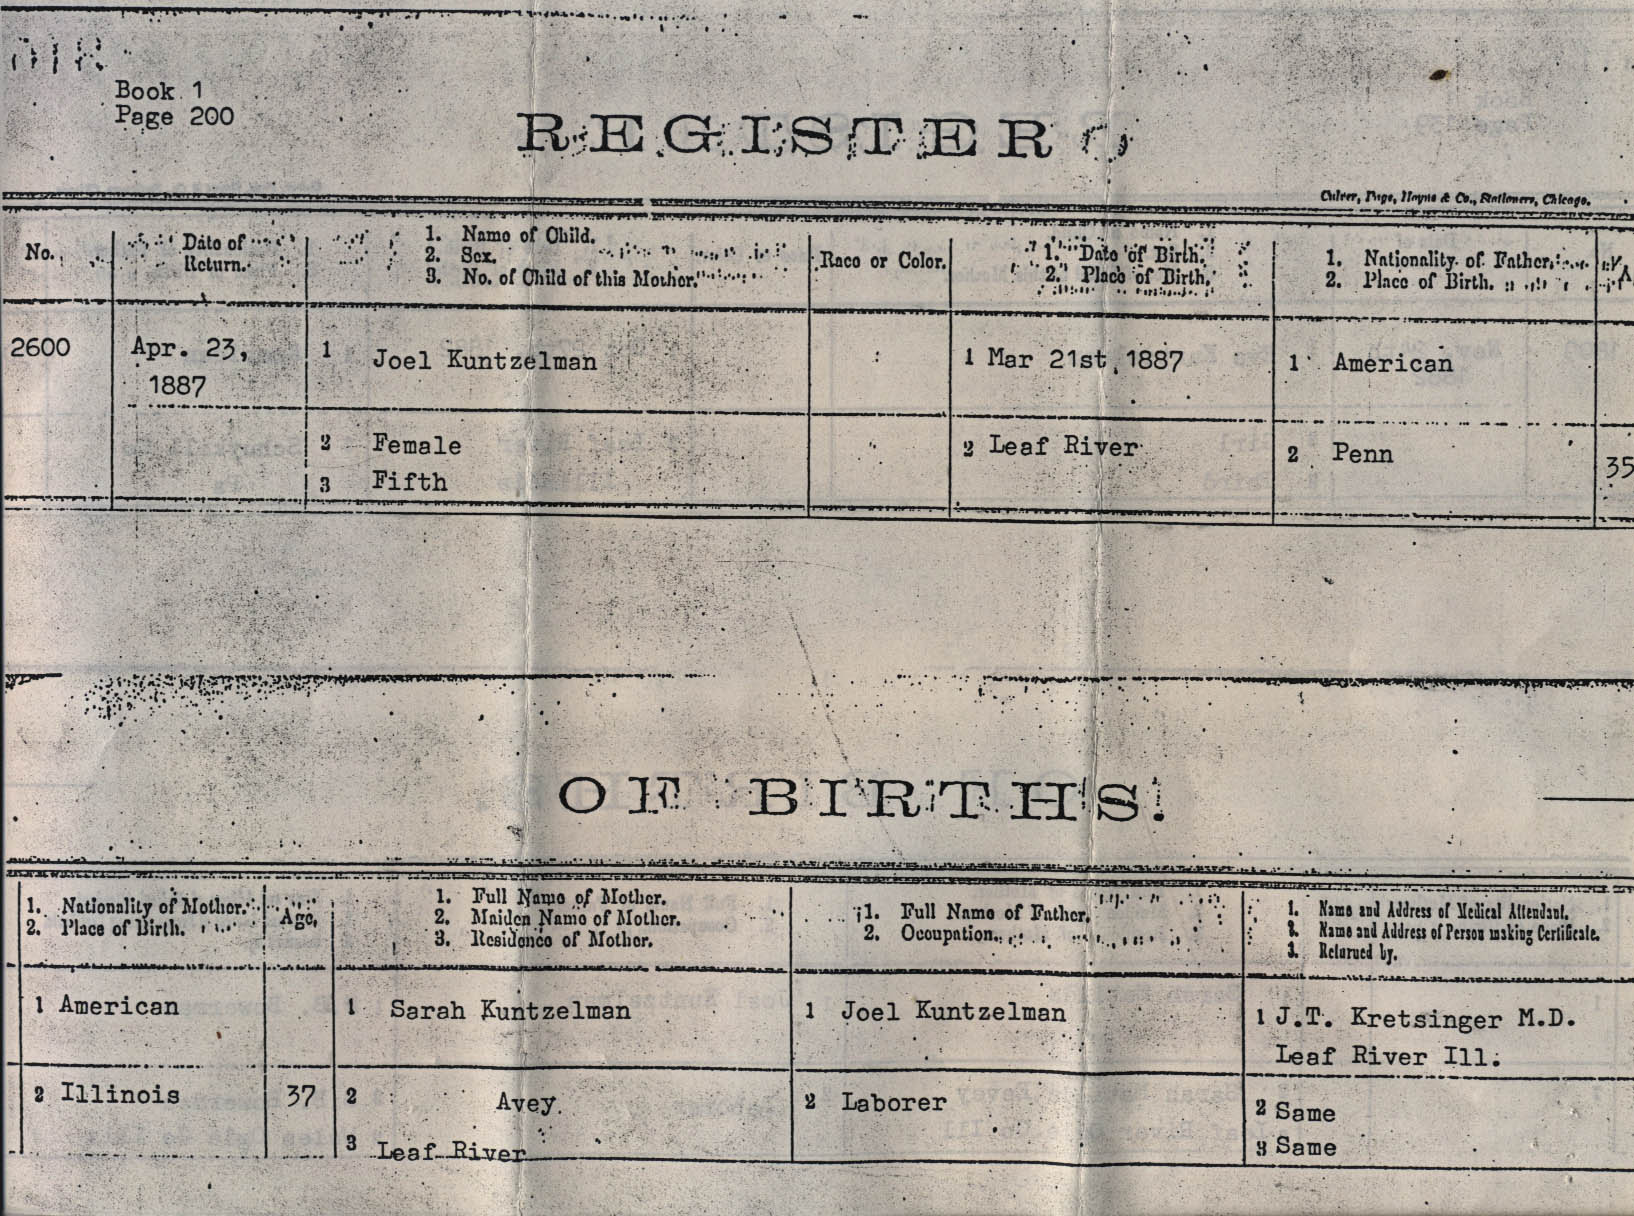 Book 1
Page 200
REGISTER
Culver, Page, Hoyne & Co., Stationers, Chicago.
No.
Date of
Return.
1. Name of Child.
2. Sex.
3. No. of Child of this Mother.
Race or Color.
1. Date of Birth.
2. Place of Birth.
1. Nationality of Father.
2. Place of Birth.
2600
Apr. 23,
1887
1 Joel Kuntzelman
1 Mar 21st, 1887
1 American
2 Female
3 Fifth
2 Leaf River
2 Penn
35
OF BIRTHS.
1. Nationality of Mother.
2. Place of Birth.
Age,
1. Full Name of Mother.
2. Maiden Name of Mother.
3. Residence of Mother.
1. Full Name of Father.
2. Occupation.
1. Name and Address of Medical Attendant.
2. Name and Address of Person making Certificate.
3. Returned by.
1 American
1 Sarah Kuntzelman
1 Joel Kuntzelman
1 J.T. Kretsinger M.D.
Leaf River Ill.
2 Illinois
37
2 Avey
3 Leaf River
2 Laborer
2 Same
3 Same